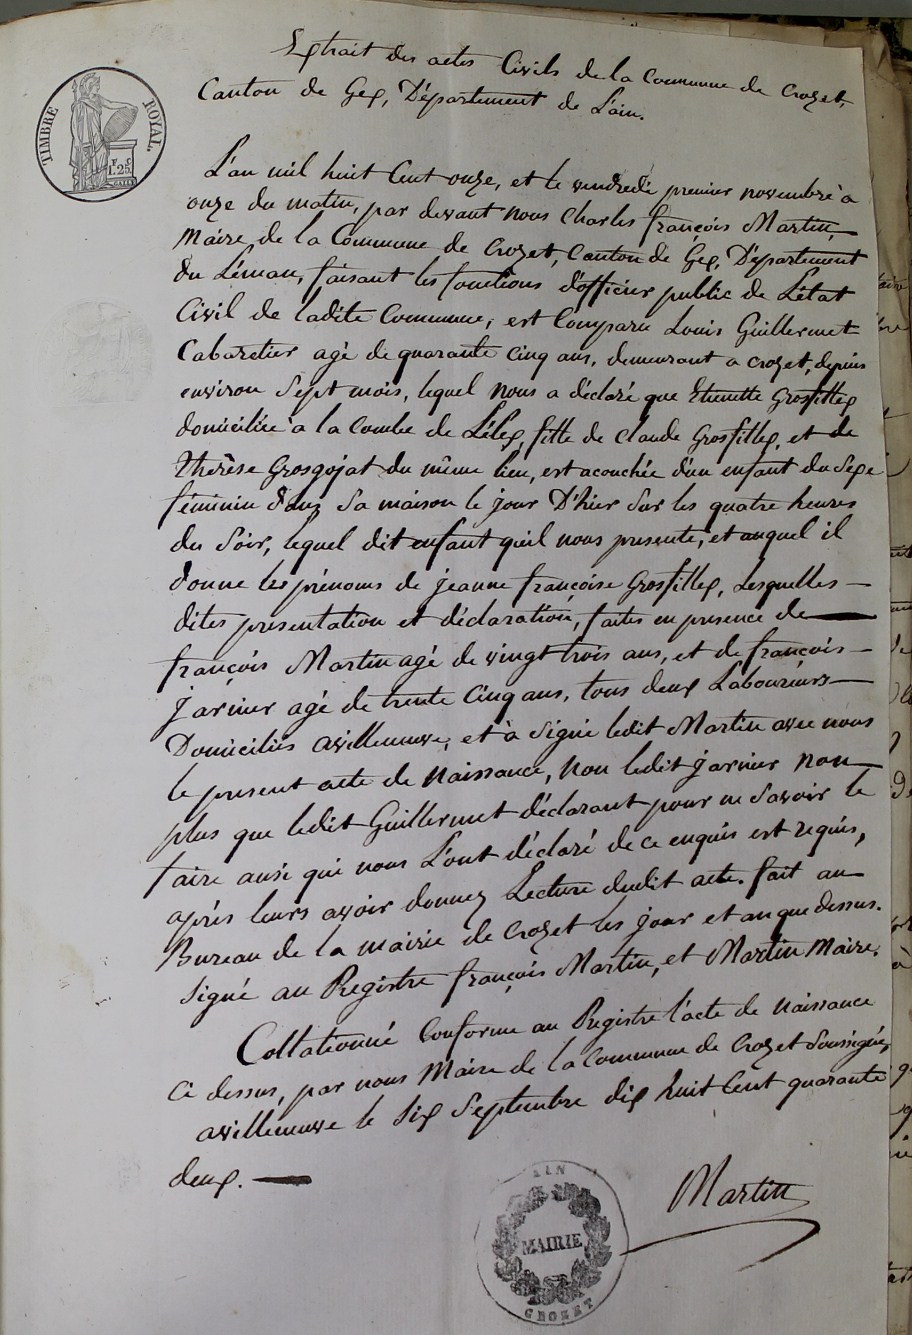 Extrait des actes Civils de la Commune de Crozet,
Canton de Gex, Département de L'ain.
TIMBRE ROYAL.
F. C
1.25
L'an mil huit Cent onze, et le vendredi premier novembre à
onze du matin, par devant nous Charles françois Martin,
Maire, de la Commune de Crozet, Canton de Gex, Département
du Léman, faisant les fonctions d'officier public de L'état
Civil de ladite Commune, est Comparu Louis Guillermet
Cabaretier agé de quarante cinq ans, demeurant a crozet, depuis
environ Sept mois, lequel nous a déclaré que Etienette Grosfillex
domiciliée à la Combe de Lélex, fille de Claude Grosfillex, et de
thérèse Grosgojat du même lieu, est acouchée d'un enfant du Sexe
féminin dans Sa maison le jour D'hier Sur les quatre heures
du Soir, lequel dit enfant qu'il nous presente, et auquel il
donne les prénoms de jeanne françoise Grosfillex, Lesquelles
dites presentation et déclaration, faites en presence de
françois Martin agé de vingt trois ans, et de françois
jarnier agé de trente Cinq ans, tous deux Laboureurs
Domiciliés avilleneuve, et à Signé ledit Martin avec nous
le present acte de Naissance, Non ledit jarnier non
plus que ledit Guillermet déclarant pour ne Savoir le
faire ansi qui nous L'ont déclaré de ce enquis est requis,
après leurs avoir donnez Lecture dudit acte. fait au
Bureau de la mairie de Crozet les jour et an que dessus.
Signé au Registre françois Martin, et Martin Maire.
Collationné Conforme au Registre l'acte de Naissance
Ci dessus, par nous Maire de la Commune de Crozet Soussigné,
avilleneuve le Six Septembre dix huit Cent quarante
deux.
Martin
AIN
MAIRIE
CROZET